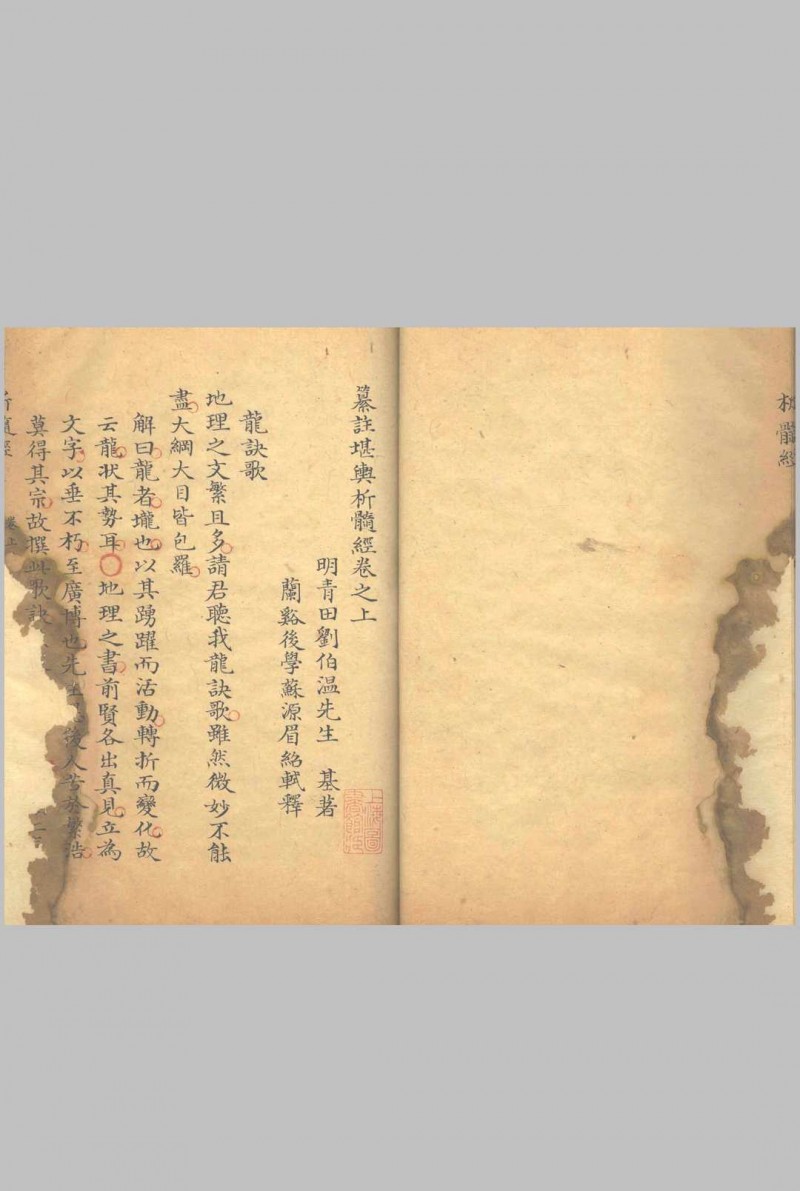 髓經
纂註堪輿析髓經卷之上
明青田劉伯温先生 基著
蘭谿後學蘇源眉紹軾釋
龍訣歌
地理之文繁且多請君聽我龍訣歌雖然微妙不能
盡大綱大目皆包羅
解曰龍者壠也以其踴躍而活動轉折而變化故
云龍狀其勢耳〇地理之書前賢各出真見立為
文字以垂不朽至廣博也先生後人苦於繁浩
莫得其宗故撰此歌訣